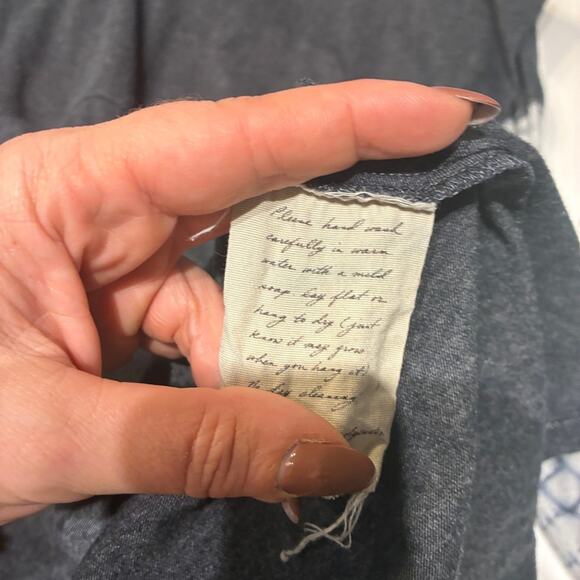 Please hand wash
carefully in warm
water with a mild
soap. Lay flat or
hang to dry (just
know it may grow
when you hang it).
No dry cleaning